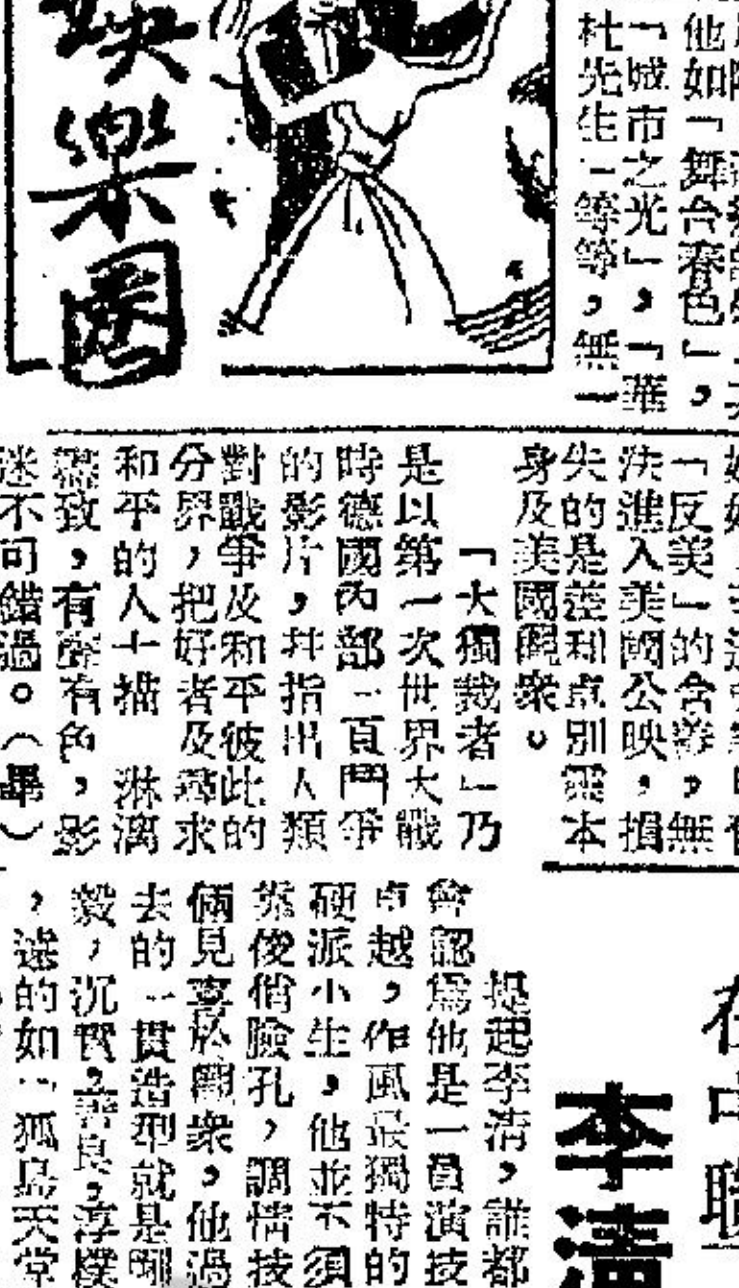 他如「舞台春色」，
「城市之光」，「華
杜先生」等等，無一
「反美」的含，無
法進入美國公映，損
失的是差利卓別靈本
身及美國觀衆。
「大獨裁者」乃
是以第一次世界大戰
時德國內部一頁鬥爭
的影片，幷指出人類
對戰爭及和平彼此的
分界，把好者及尋求
和平的人士描 淋漓
盡致，有聲有色，影
迷不可錯過。（畢）
映樂園
在中聯
李清
提起李清，誰都
會認爲他是一員演技
卓越，作風最獨特的
硬派小生，他並不須
英俊俏臉孔，調情技
倆見喜於觀衆，他過
去的一貫造型就是剛
毅，沉實，善良，淳樸
，遠的如「孤島天堂